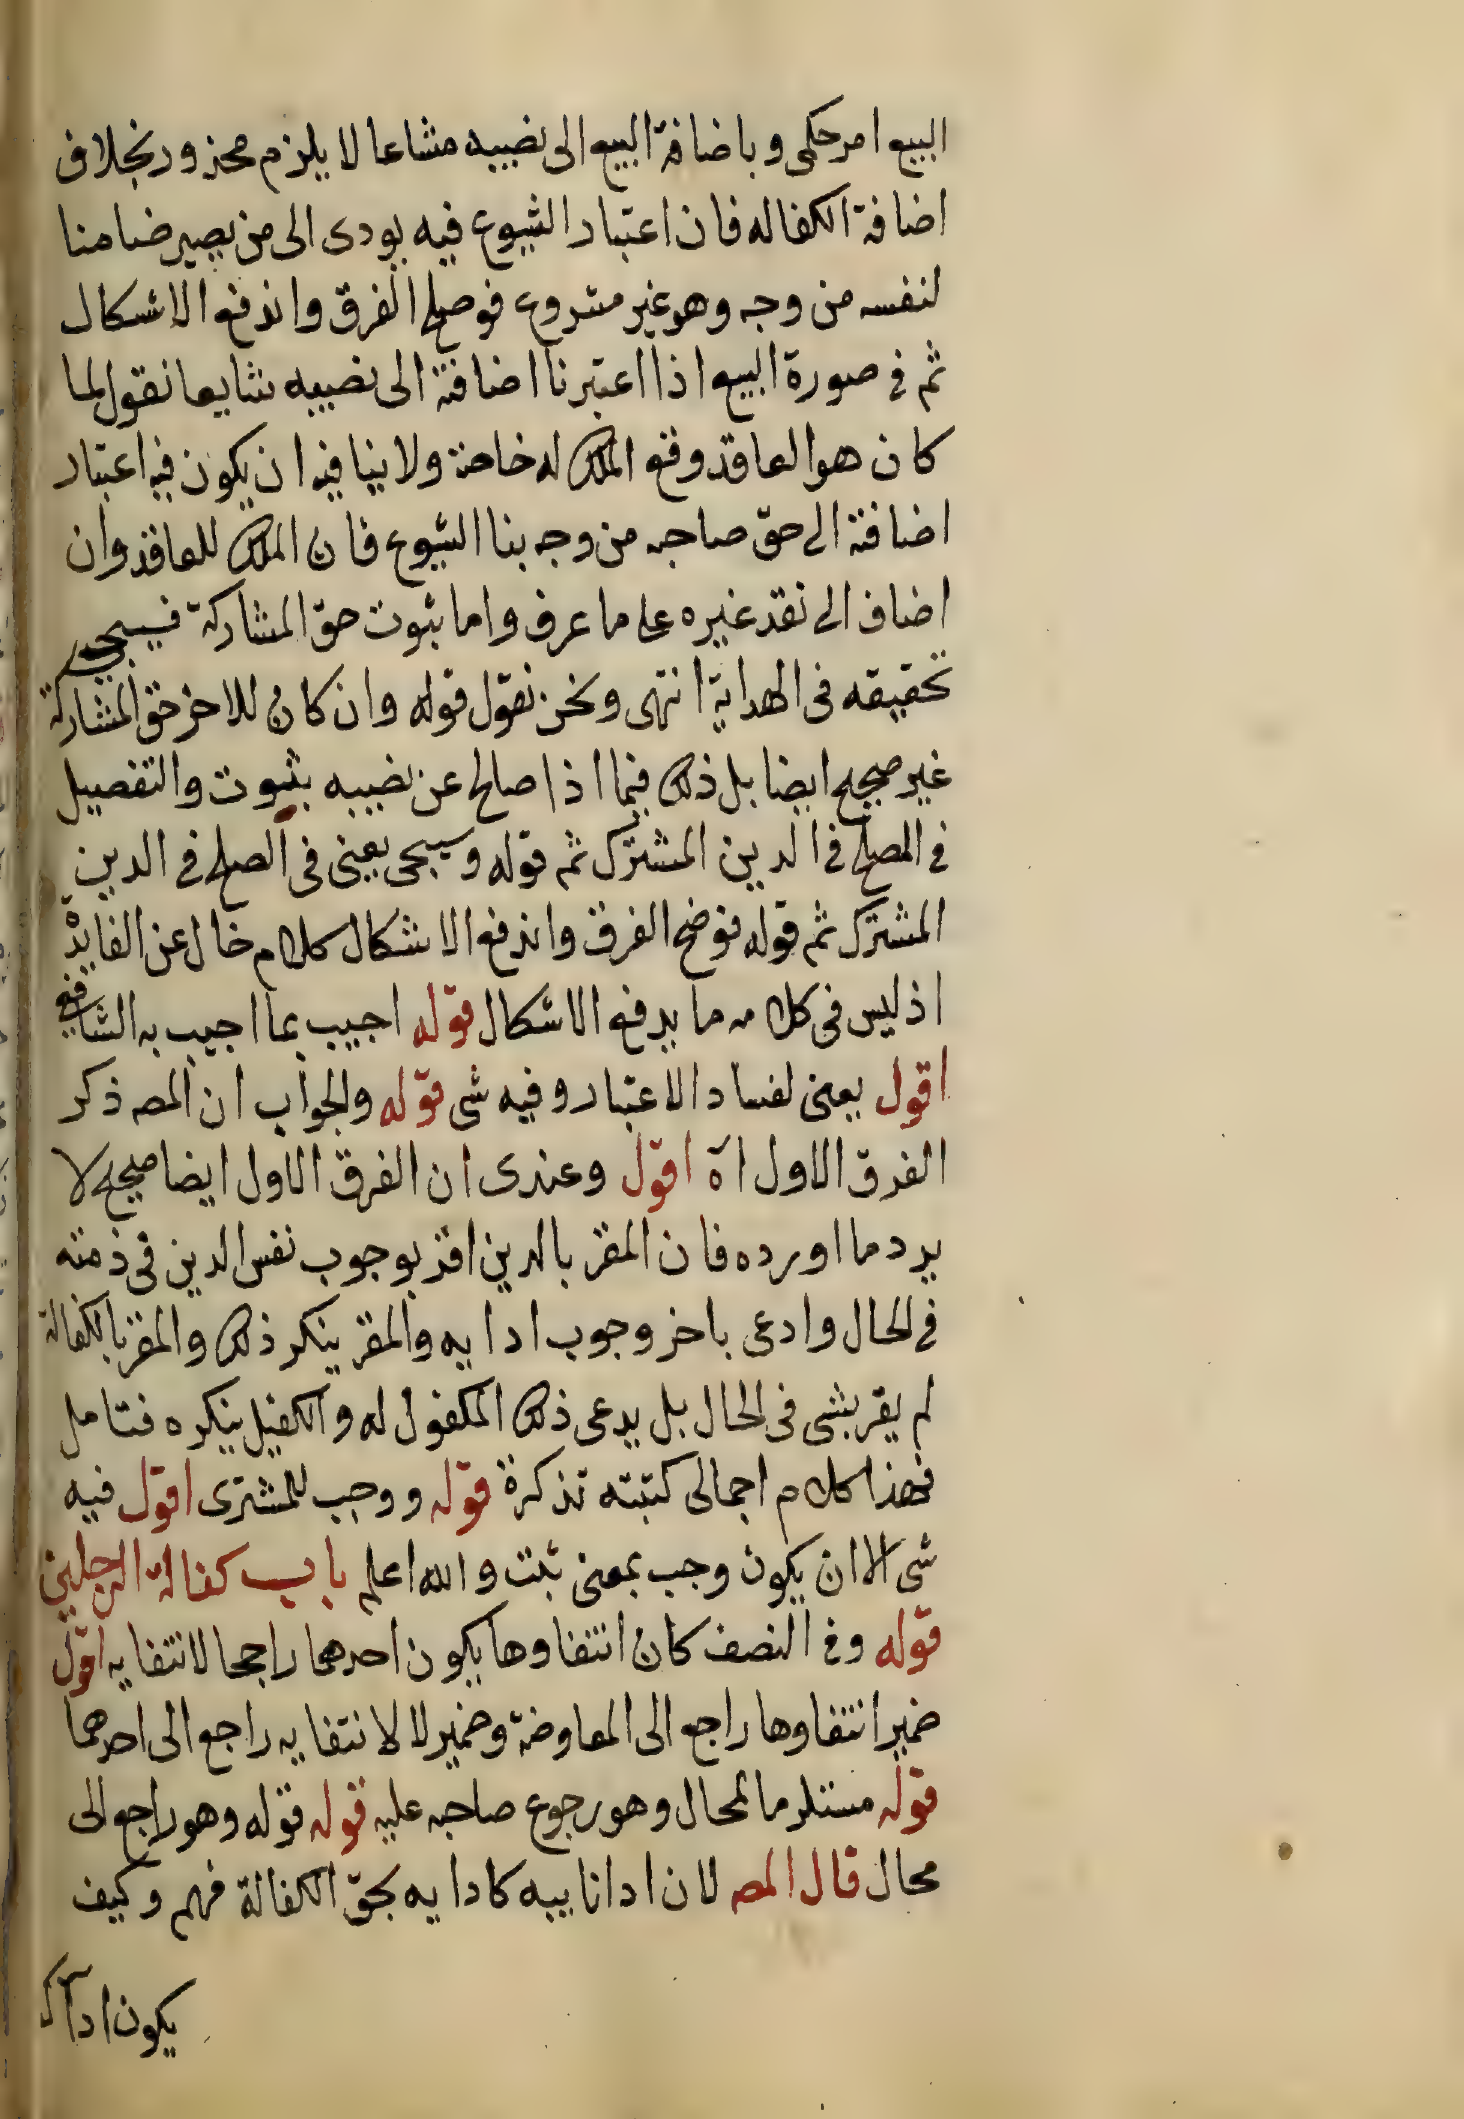 البيع امر حكمى و باضافة البيع الى نصيبه مشاعا لا يلزم محزور بخلاف
اضافة الكفاله فان اعتبار الشيوع فيه يودى الى من يصير ضامنا
لنفسه من وجه وهو غير مشروع فوضح الفرق واندفع الاشكال
ثم فى صورة البيع اذا اعتبرنا اضافة الى نصيبه شايعا نقول لما
كان هو العاقد وقع الملك له خاصة ولا ينافيه ان يكون فيه اعتبار
اضافة الى حق صاحبه من وجه بنا الشيوع فان الملك للعاقد وان
اضاف الى نقد غيره على ما عرف واما ثبوت حق المشاركة فسيجى
تحقيقه فى الهداية انتهى ونحن نقول قوله وان كان للاخر حق المشاركة
غير صحيح ايضا بل ذلك فيما اذا صالح عن نصيبه بثوت والتفصيل
فى الصلح فى الدين المشترك ثم قوله وسيجى يعنى فى الصلح فى الدين
المشترك ثم قوله فوضح الفرق واندفع الاشكال كلام خال عن الفايدة
اذ ليس فى كلامه ما يدفع الاشكال قوله اجيب بما اجيب به الشافعى
اقول يعنى لفساد الاعتبار وفيه شى قوله والجواب ان المصـ ذكر
الفرق الاول اه اقول وعندى ان الفرق الاول ايضا صحيح لا
يرد ما اورده فان المقر بالدين اقر بوجوب نفس الدين فى ذمته
فى الحال وادعى باخر وجوب ادايه والمقر ينكر ذلك والمقر بالكفالة
لم يقر بشى فى الحال بل يدعى ذلك المكفول له والكفيل ينكره فتامل
فهذا كلام اجمالى كتبته تذكرة قوله ووجب للمشترى اقول فيه
شى الا ان يكون وجب بمعنى ثبت والله اعلم باب كفالة الرجلين
قوله وفى النصف كان انتفاوها يكون احدهما راجحا لانتفايه اقول
ضمير انتفاوها راجع الى المعاوضة وضمير لا لانتفايه راجع الى احدهما
قوله مستلزما لمحال وهو رجوع صاحبه عليه قوله قوله وهو راجع الى
محال قال المصـ لان ادا نايبه كادايه بحق الكفالة فهم وكيف
يكون ادا